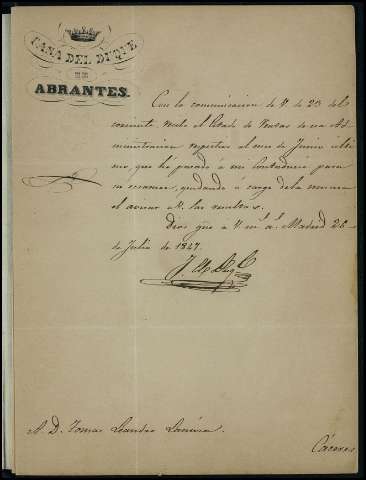 CASA DEL DUQUE
DE
ABRANTES.
Con la comunicacion de V. de 23 del
corriente, recibo el Estado de Ventas de esa Ad-
ministracion respectivo al mes de Junio ulti-
mo, que he pasado á mi Contaduria para
su examen, quedando á cargo de la misma
el avisar á V. las resultas.
Dios gue á V. m.s a.s Madrid 26
de Julio de 1847.
A D. Tomas Leandro
Cáceres